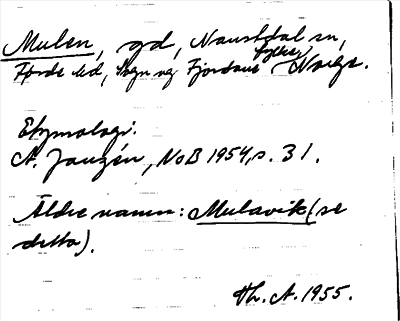 Mulen, gd, Naustdal sn,
Førde hd, Sogn og Fjordane fylke, Norge.
Etymologi.
A. Janzén, NoB 1954, s. 31.
Äldre namn: Mulavik (se
detta).
Th. A. 1955.